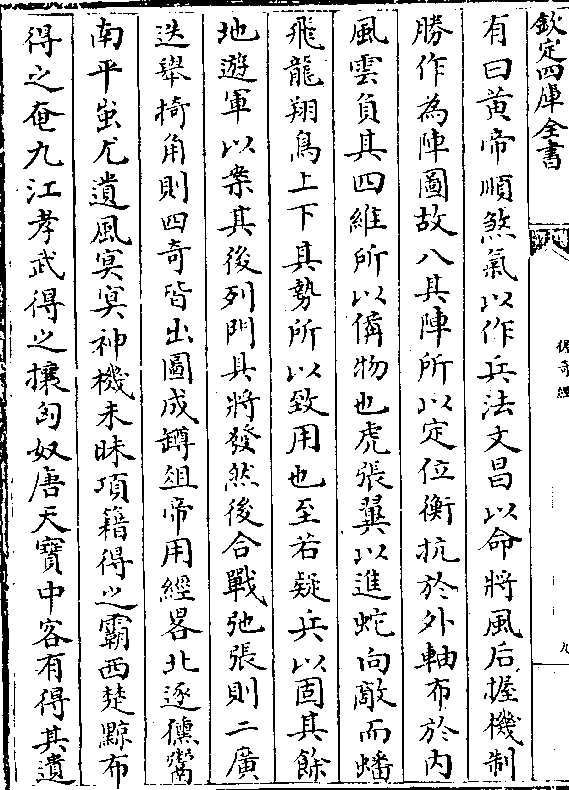 欽定四庫全書
握奇經
九
有曰黃帝順煞氣以作兵法文昌以命將風后握機制
勝作為陣圖故八其陣所以定位衡抗於外軸布於内
風雲負其四維所以備物也虎張翼以進蛇向敵而蟠
飛龍翔鳥上下其勢所以致用也至若疑兵以固其餘
地遊軍以案其後列門具將發然後合戰弛張則二廣
迭舉掎角則四奇皆出圖成罇俎帝用經畧北逐獯鬻
南平蚩尤遺風冥冥神機未昧項籍得之霸西楚黥布
得之奄九江孝武得之攘匈奴唐天寶中客有得其遺